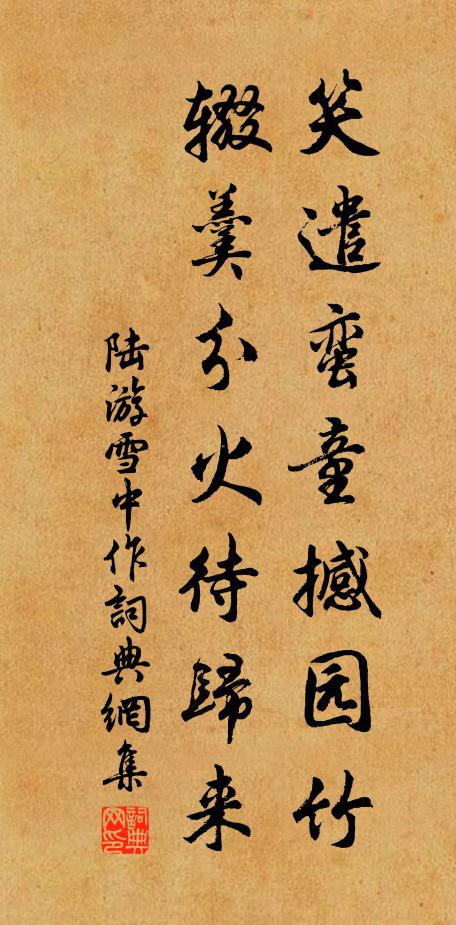 笑遣蛮童撼园竹
辍羹分火待歸来
陆游雪中作詞典網集
詞典网印